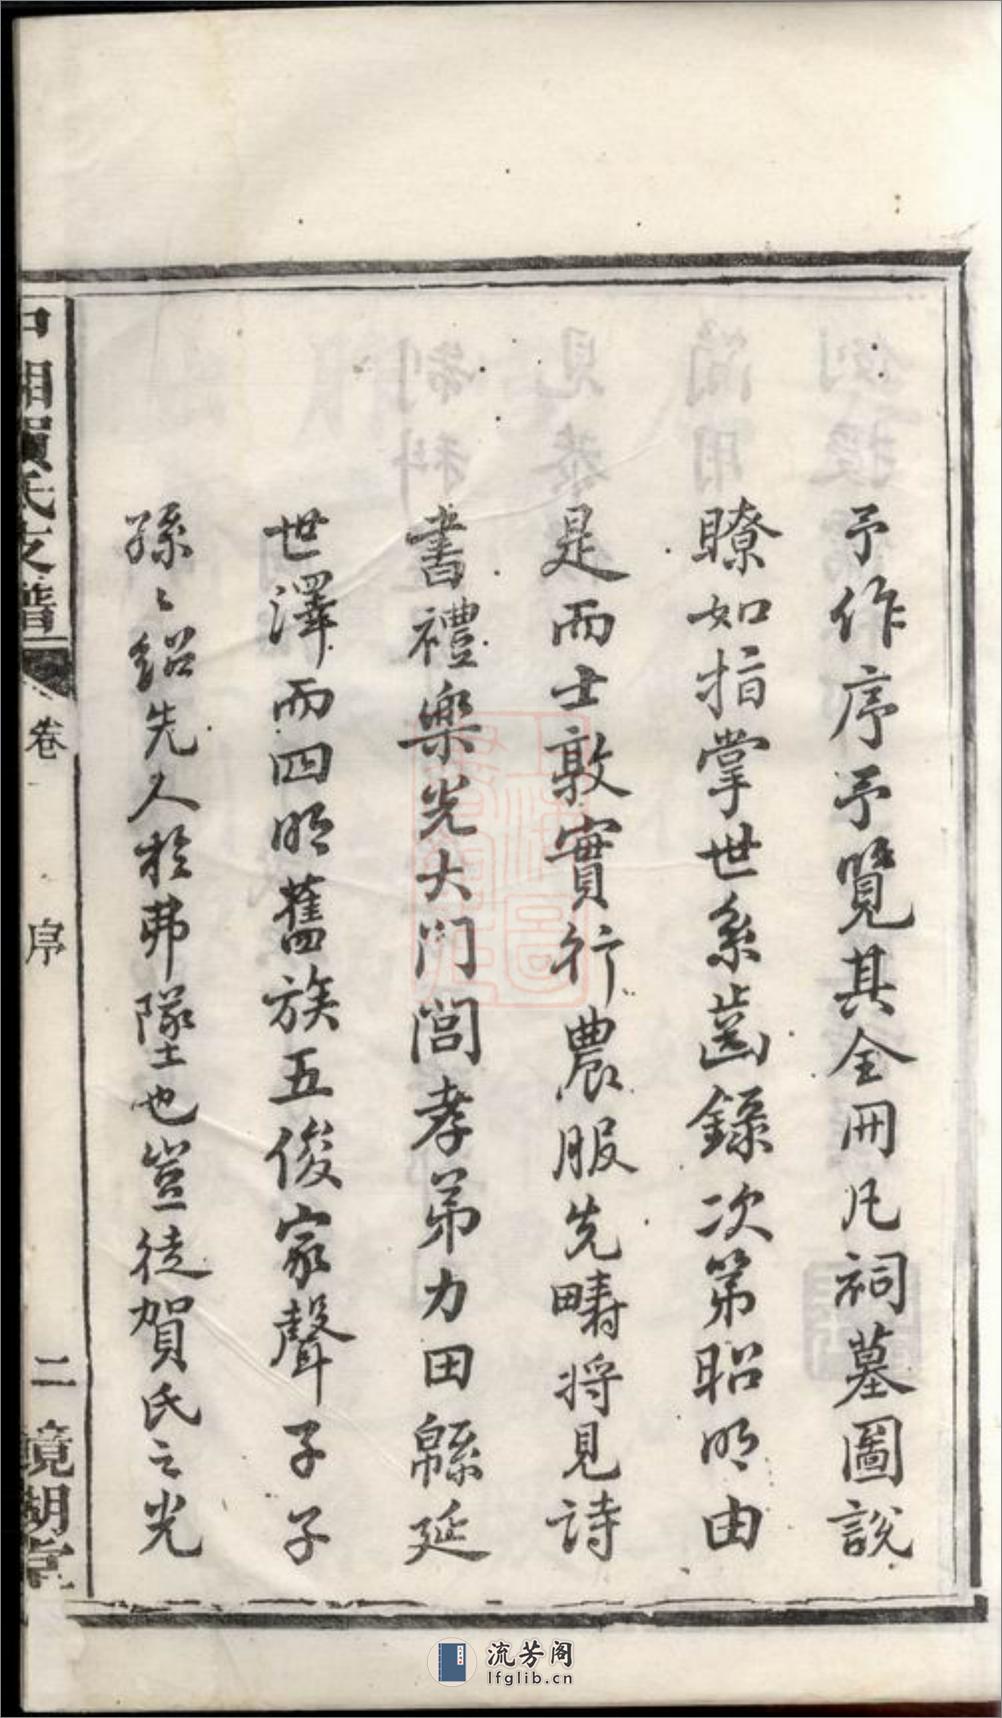 予作序予覽其全冊凡祠墓圖說
瞭如指掌世系齒錄次第昭明由
是而士敦實行農服先疇将見詩
書禮樂光大門閭孝弟力田緜延
世澤而四明舊族五俊家聲子子
孫〻紹先人於弗墜也豈徒賀氏之光
賀氏支譜
卷
序
二
鏡湖堂
流芳阁
lfglib.cn